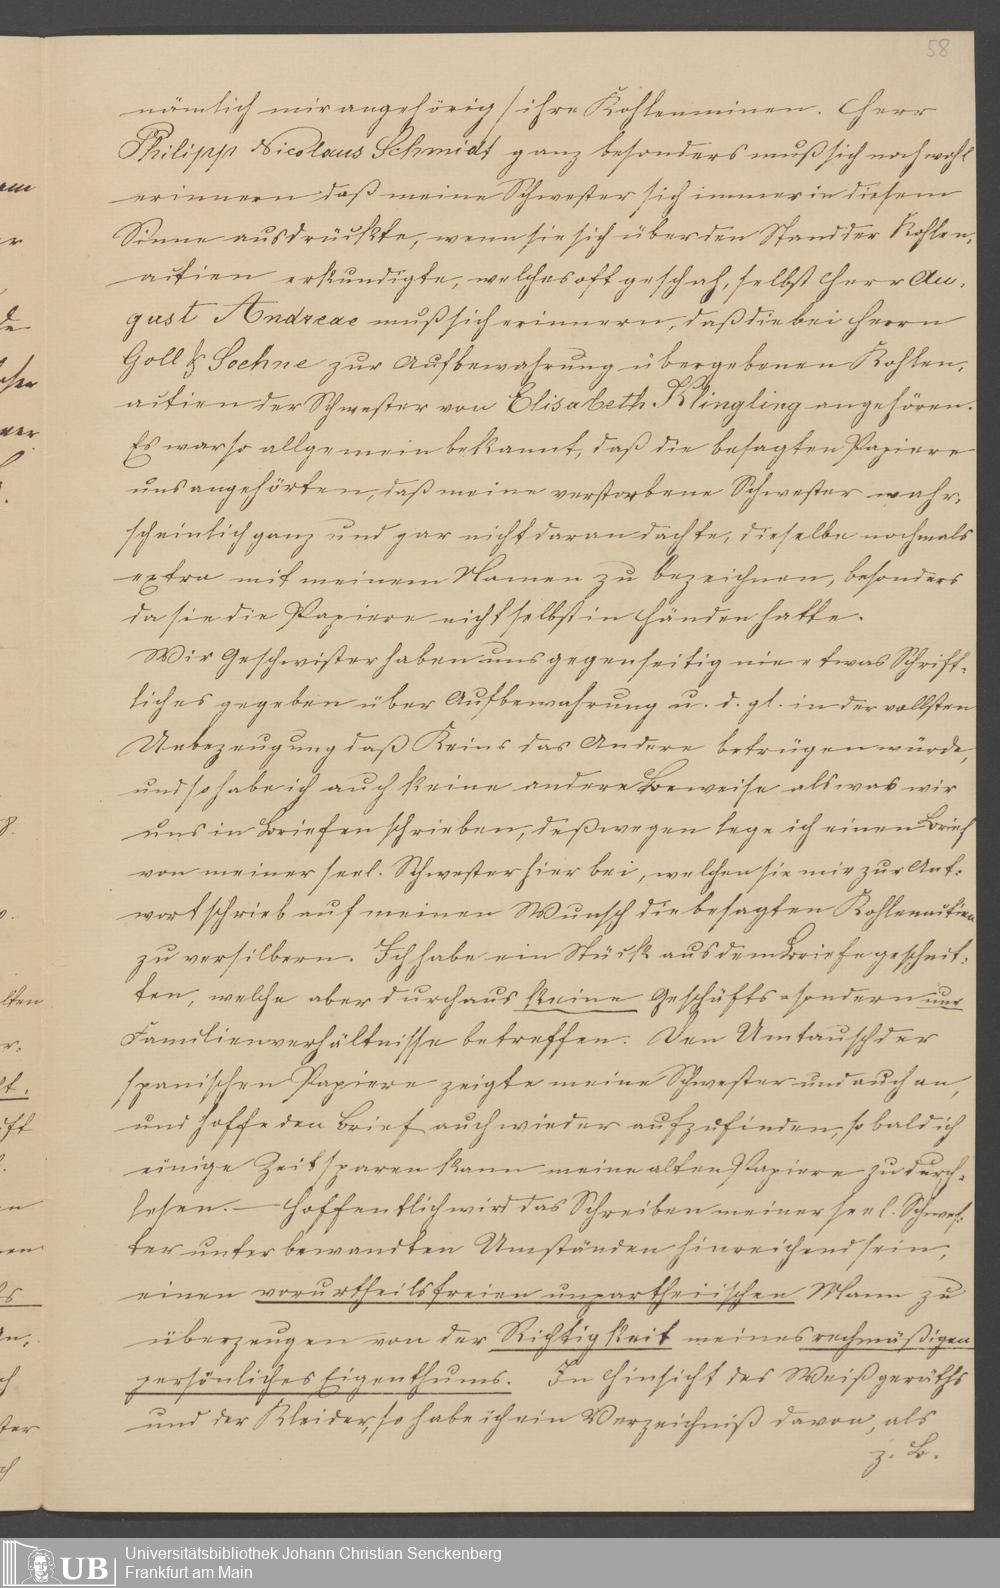 58
nämlich mir angehörig / ihre Kohlenminen. Herr
Philipp Nicolaus Schmidt ganz besonders muß sich noch wohl
erinnern daß meine Schwester sich immer in diesem
Sinne ausdrückte, wenn sie sich über den Stand der Kohlen,
actien erkundigte, welches oft geschah, selbst Herr Au,
gust Andreae muß sich erinnern, daß die bei Herrn
Goll & Soehne zur Aufbewahrung übergebenen Kohlen,
actien der Schwester von Elisabeth Klingling angehören.
Es war so allgemein bekannt, daß die besagten Papiere
uns angehörten, daß meine verstorbene Schwester wahr,
scheinlich ganz und gar nicht daran dachte, dieselbe nochmals
extra mit meinem Namen zu bezeichnen, besonders
da sie die Papiere nicht selbst in Händen hatte.
Wir Geschwister haben uns gegenseitig nie etwas Schrift-
liches gegeben über Aufbewahrung u. d. gl. in der vollsten
Uebezeugung daß Keins das Andere betrügen würde,
und so habe ich auch keine andere Beweise als was wir
uns in Briefen schrieben, deßwegen lege ich einen Brief
von meiner seel. Schwester hier bei, welchen sie mir zur Ant-
wort schrieb auf meinen Wunsch die besagten Kohlenactien
zu versilbern. Ich habe ein Stück aus dem Briefe geschnit-
ten, welche aber durchaus keine Geschäfts- sondern nur
Familienverhältnisse betreffen. Den Umtausch der
spanischen Papiere zeigte meine Schwester und auch an,
und hoffe den Brief auch wieder aufzufinden, so bald ich
einige Zeit sparen kann meine alten Papiere zu durch-
lesen. — Hoffentlich wird das Schreiben meiner seel. Schwes-
ter unter bewandten Umständen hinreichend sein,
einen vorurtheilsfreien unpartheiischen Mann zu
überzeugen von der Richtigkeit meines rechmäßigen
persönliches Eigenthums. In Hinsicht des Weißgeräths
und der Kleider, so habe ich ein Verzeichniß davon, als
z. B.
UB
Universitätsbibliothek Johann Christian Senckenberg
Frankfurt am Main